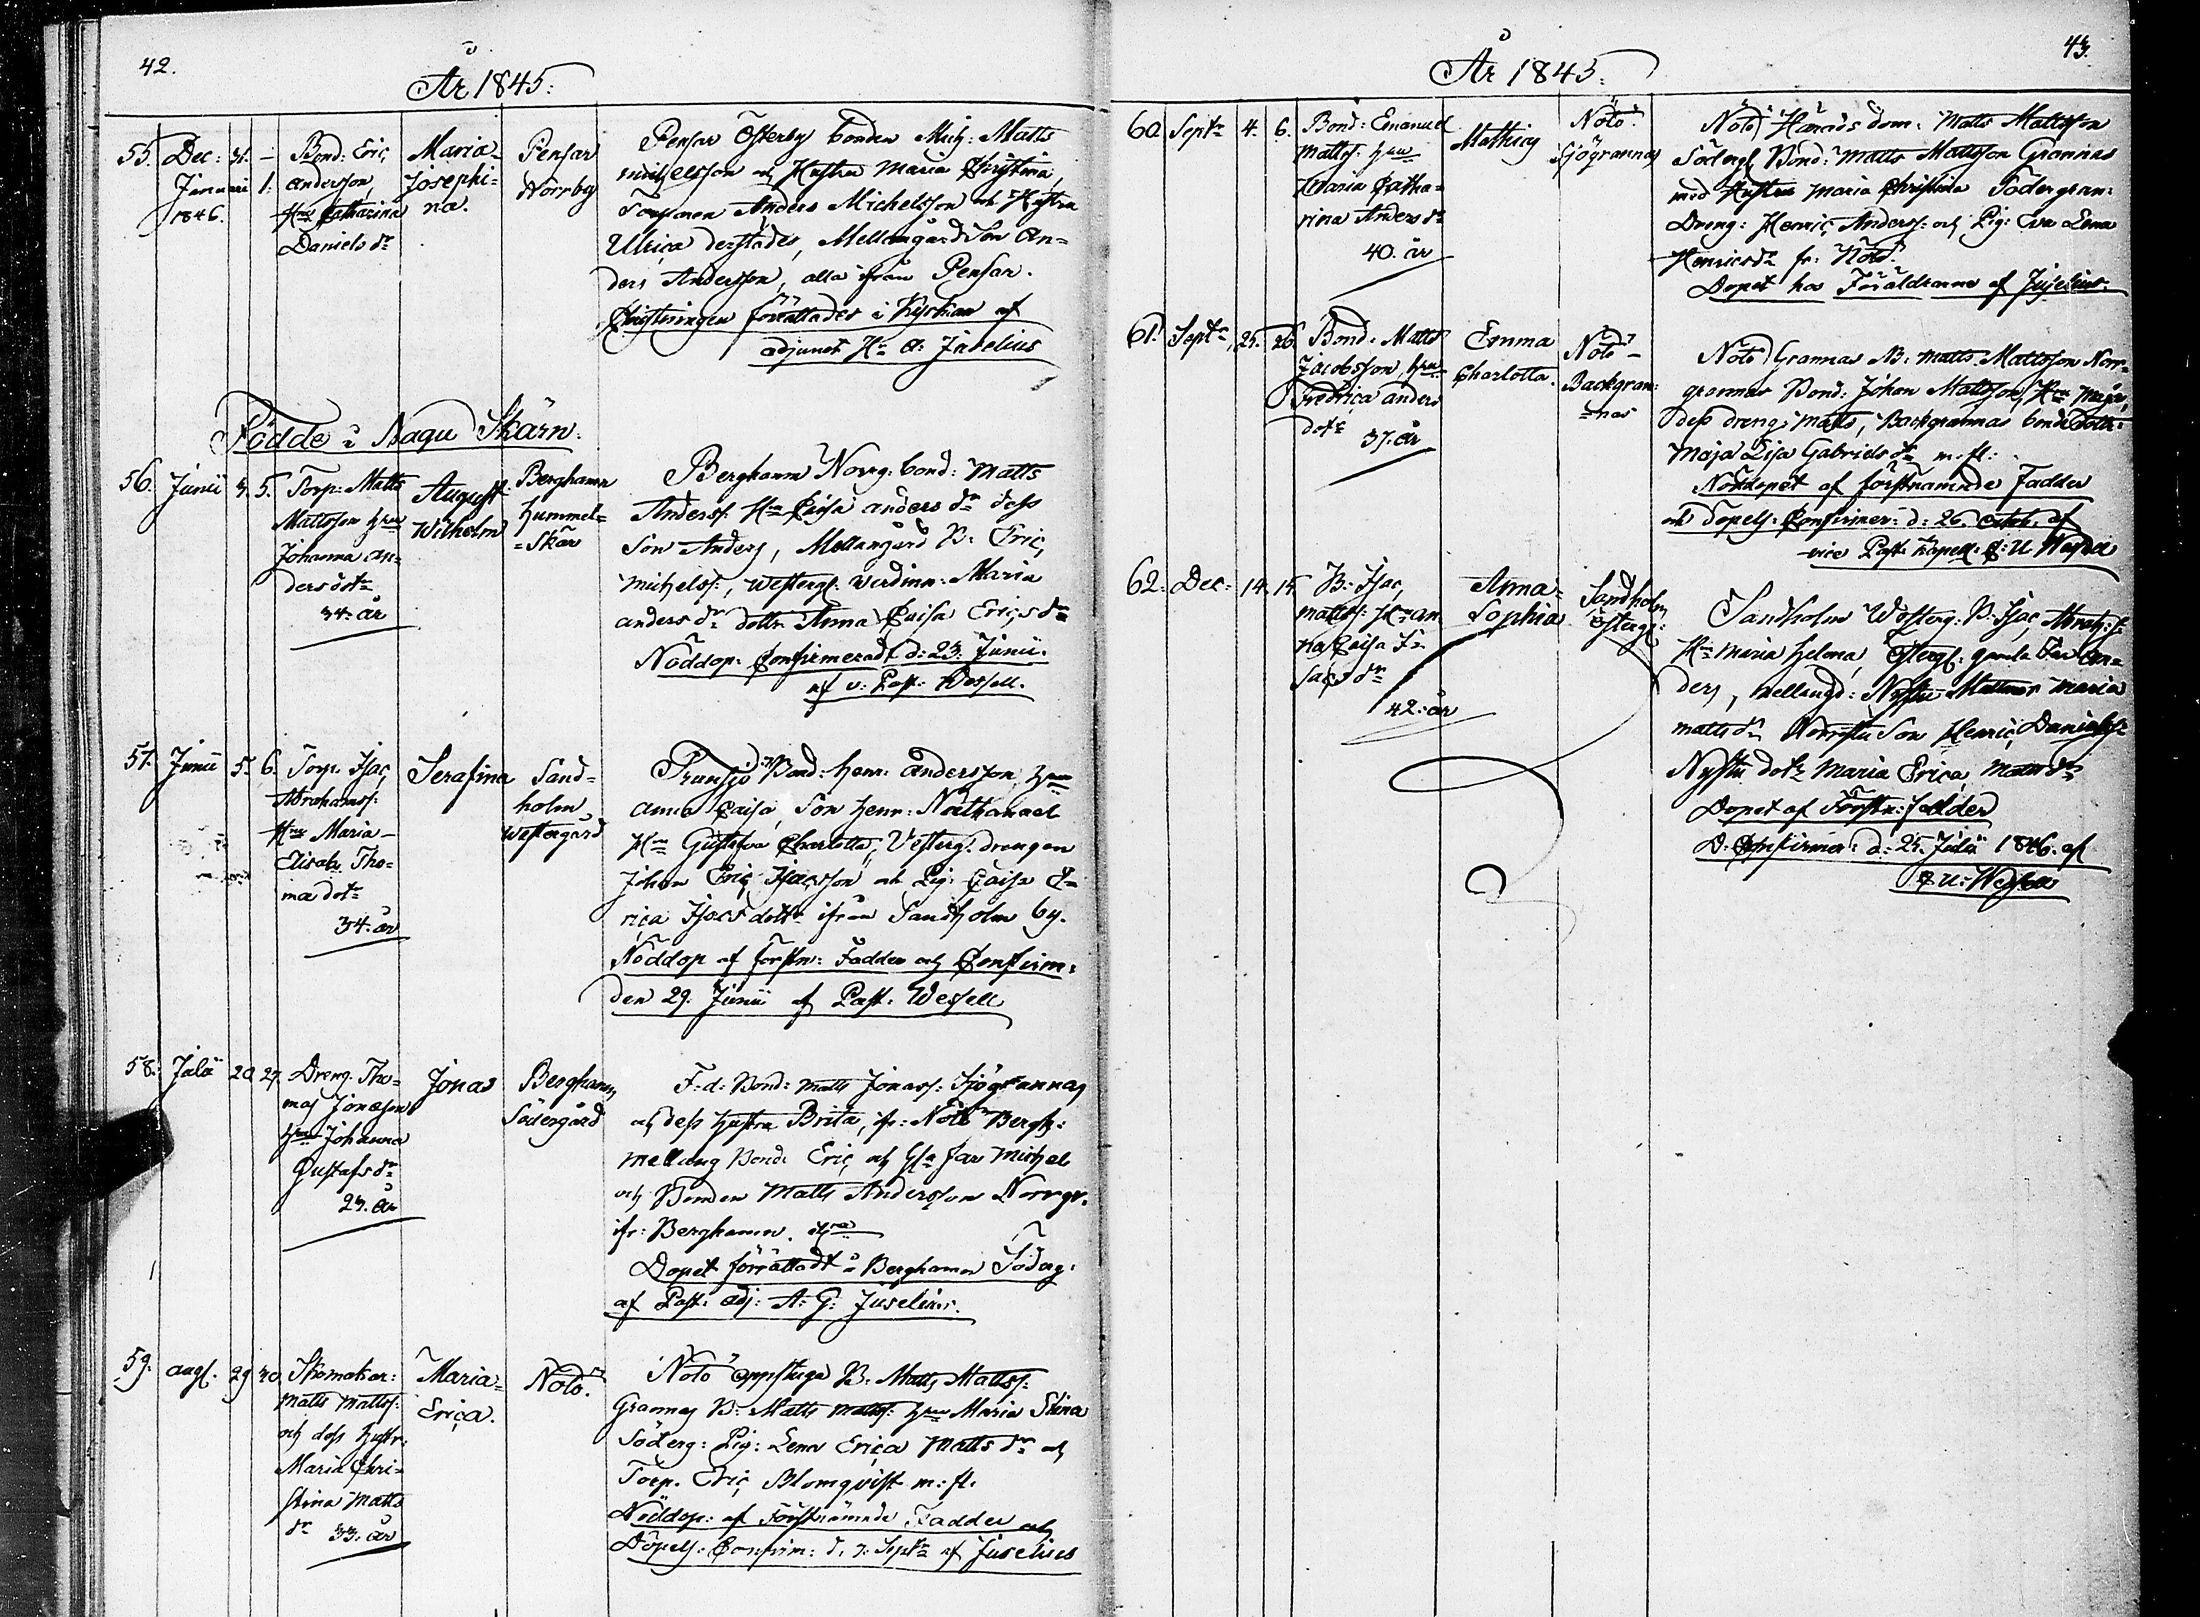 42.
År 1845.
55. Dec: 31. –
Januari 1.
1846.
Bond: Eric
Andersson,
Hu Catharina
Daniels dr
Maria
Josephi=
na.
Pensar
Norrby
Pensar Österby bonden Mich: Matts
Michelsson och Hustru Maria Christina,
Torparen Anders Michelsson och Hustru
Ulrica derstädes, Mellangårds Son An=
ders Andersson, alla från Pensar.
Christningen förrättades i Kyrkan af
adjunct Hr A: Juselius
Födde i Nagu Skärn.
56. Junii 3. 5.
Torp: Matts
Mattsson hru
Johanna An=
ders dotr
34. år
August
Wilhelm
Berghamn
Hummel=
=skär
Berghamn Norrg: bond: Matts
Anderss: Hru Caisa Anders dr dess
Son Anders, Mellangård B: Eric
Michelss:, Westergs: Värdinn: Maria
Anders dr dottr Anna Caisa Erics dr
Nöddop: Confirmeradt d: 23. Junii.
af v: Past: Wessell.
57. Junii 5. 6.
Torp. Isac
Abrahamss:
Hru Maria
Elisab: Tho=
ma dotr
34. år
Serafina
Sand=
holm
Westergård
Bond: Henr: Andersson, hru
Anna Caisa, Son Henr: Nathanael
Hru Gustava Charlotta, Vesterg. drengen
Johan Eric Isacsson och Pig: Caisa E=
rica Isacs dottr ifrån Sandholm by.
Nöddop af förstn: Fadder och Confirm:
den 29. Junii af Past: Wessell
58. Julii 20. 27.
Dreng. Tho=
mas Jonasson
hru Johanna
Gustafs dr
23. år
Jonas
Berghamn
Södergård
F:d: Bond: Matts Jonass: Sjögrannas
och dess hustru Brita, ifr: Nötö Bergh:
Mellang Bond: Eric och gla far Michel
och Bonden Matts Andersson Norrgr.
ifr: Berghamn.
Dopet förrättadt å Berghamn Söderg:
af Past: Adj: A: G: Juselius.
59. Aug. 29. 30.
Skomakar:
Matts Matts:
och dess hustr:
Maria Chri=
stina Matts
dr 33. år
Maria
Erica.
Nötö.
Nötö Oppstuga B: Matts Mattss:
Grannas B: Matts Mattss: hru Maria Stina
Söderg: Pig: Lena Erica Matts dr och
Torp. Eric Blomqvist m: fl.
Nöddop: af Förstnämnde Fadder och
Döpels: Confirm: d. 7. Septr af Juselius
43.
År 1845.
60. Septr 4. 6.
Bond: Emanuel
Mattss: hru
Maria Catha=
rina Anders dr
40. år
Mathias
Nötö
Sjögrannas
Nötö Härads dom. Matts Mattsson
Södergl Bond: Matts Mattsson Grannas
med Hustru Maria Christina Södergran:
Dreng: Henric Anderss: och Pig: Eva Lena
Henrics dr fr: Nötö.
Dopet hos Föräldrarne af Juselius.
61. Septr 25. 26.
Bond. Matts
Jacobsson, hru
Fredrica Anders
dotr 37. år
Emma
Charlotta.
Nötö
Backgran:
=nas
Nötö Grannas B: Matts Mattsson Norr=
grannas Bond: Johan Mattsson, Hru Maja,
dess dreng Matts, Backgrannas bonde dottr
Maja Lisa Gabriels dr m: fl:
Nöddopet af förstnämnde Fadder
och Döpels: Confirmer: d: 26. Octob. af
vice Past. Kapell: C: U: Wessell
62. Dec: 14. 15.
B: Isac
Mattss: Hru An=
na Caisa I=
sacs dr
42. år
Anna
Sophia
Sandholm
Österg:
Sandholm Westerg: B: Isac Abrah:s:
Hru Maria Helena, Östergs: gamla Far An=
ders, Mellangd: Maria
Matts dr Son Henric Danielss:
Nystu dotr Maria Erica
Dopet af Förstn: fadder
D: Confirmer: d: 25. Julii 1846. af
C U: Wessell